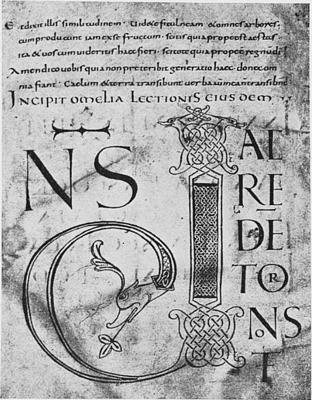 Et dixit illis similitudinem. Videte ficulneam & omnes arbores.
cum producunt iam ex se fructum. scitis quia prope est aestas.
ita & vos cum videritis haec fieri. scitote quia prope est regnū dī
Amen dico vobis quia non preteribit generatio haec. donec om
nia fiant. Caelum & terra transibunt verba
INCIPIT OMELIA LECTIONIS EIUSDEM
NS
D
AC
RE
DE
TOR
NOS
T